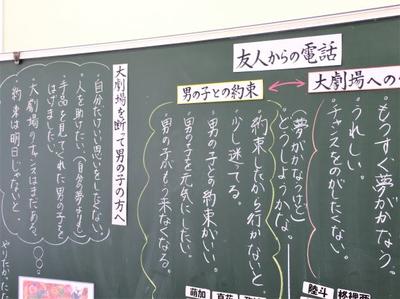 友人からの電話
大劇場への
もうすぐ夢がかなう。
うれしい。
チャンスをのがしたくない。
男の子との約束
夢がかなうけど
どうしようかな。
約束したから行かないと。
少し迷てる。
男の子との約束がいい。
男の子を元気にしたい。
男の子がもう来なくなる。
大劇場を断って男の子の方へ
・自分だけいい思いをしたくない。
・人を助けたい。(自分の夢よりも)
・手品を見てくれた男の子を
はげましたい。
・大劇場のチャンスはまだある。
・約束は明日じゃないと。
やりたかった
陸斗
萌加